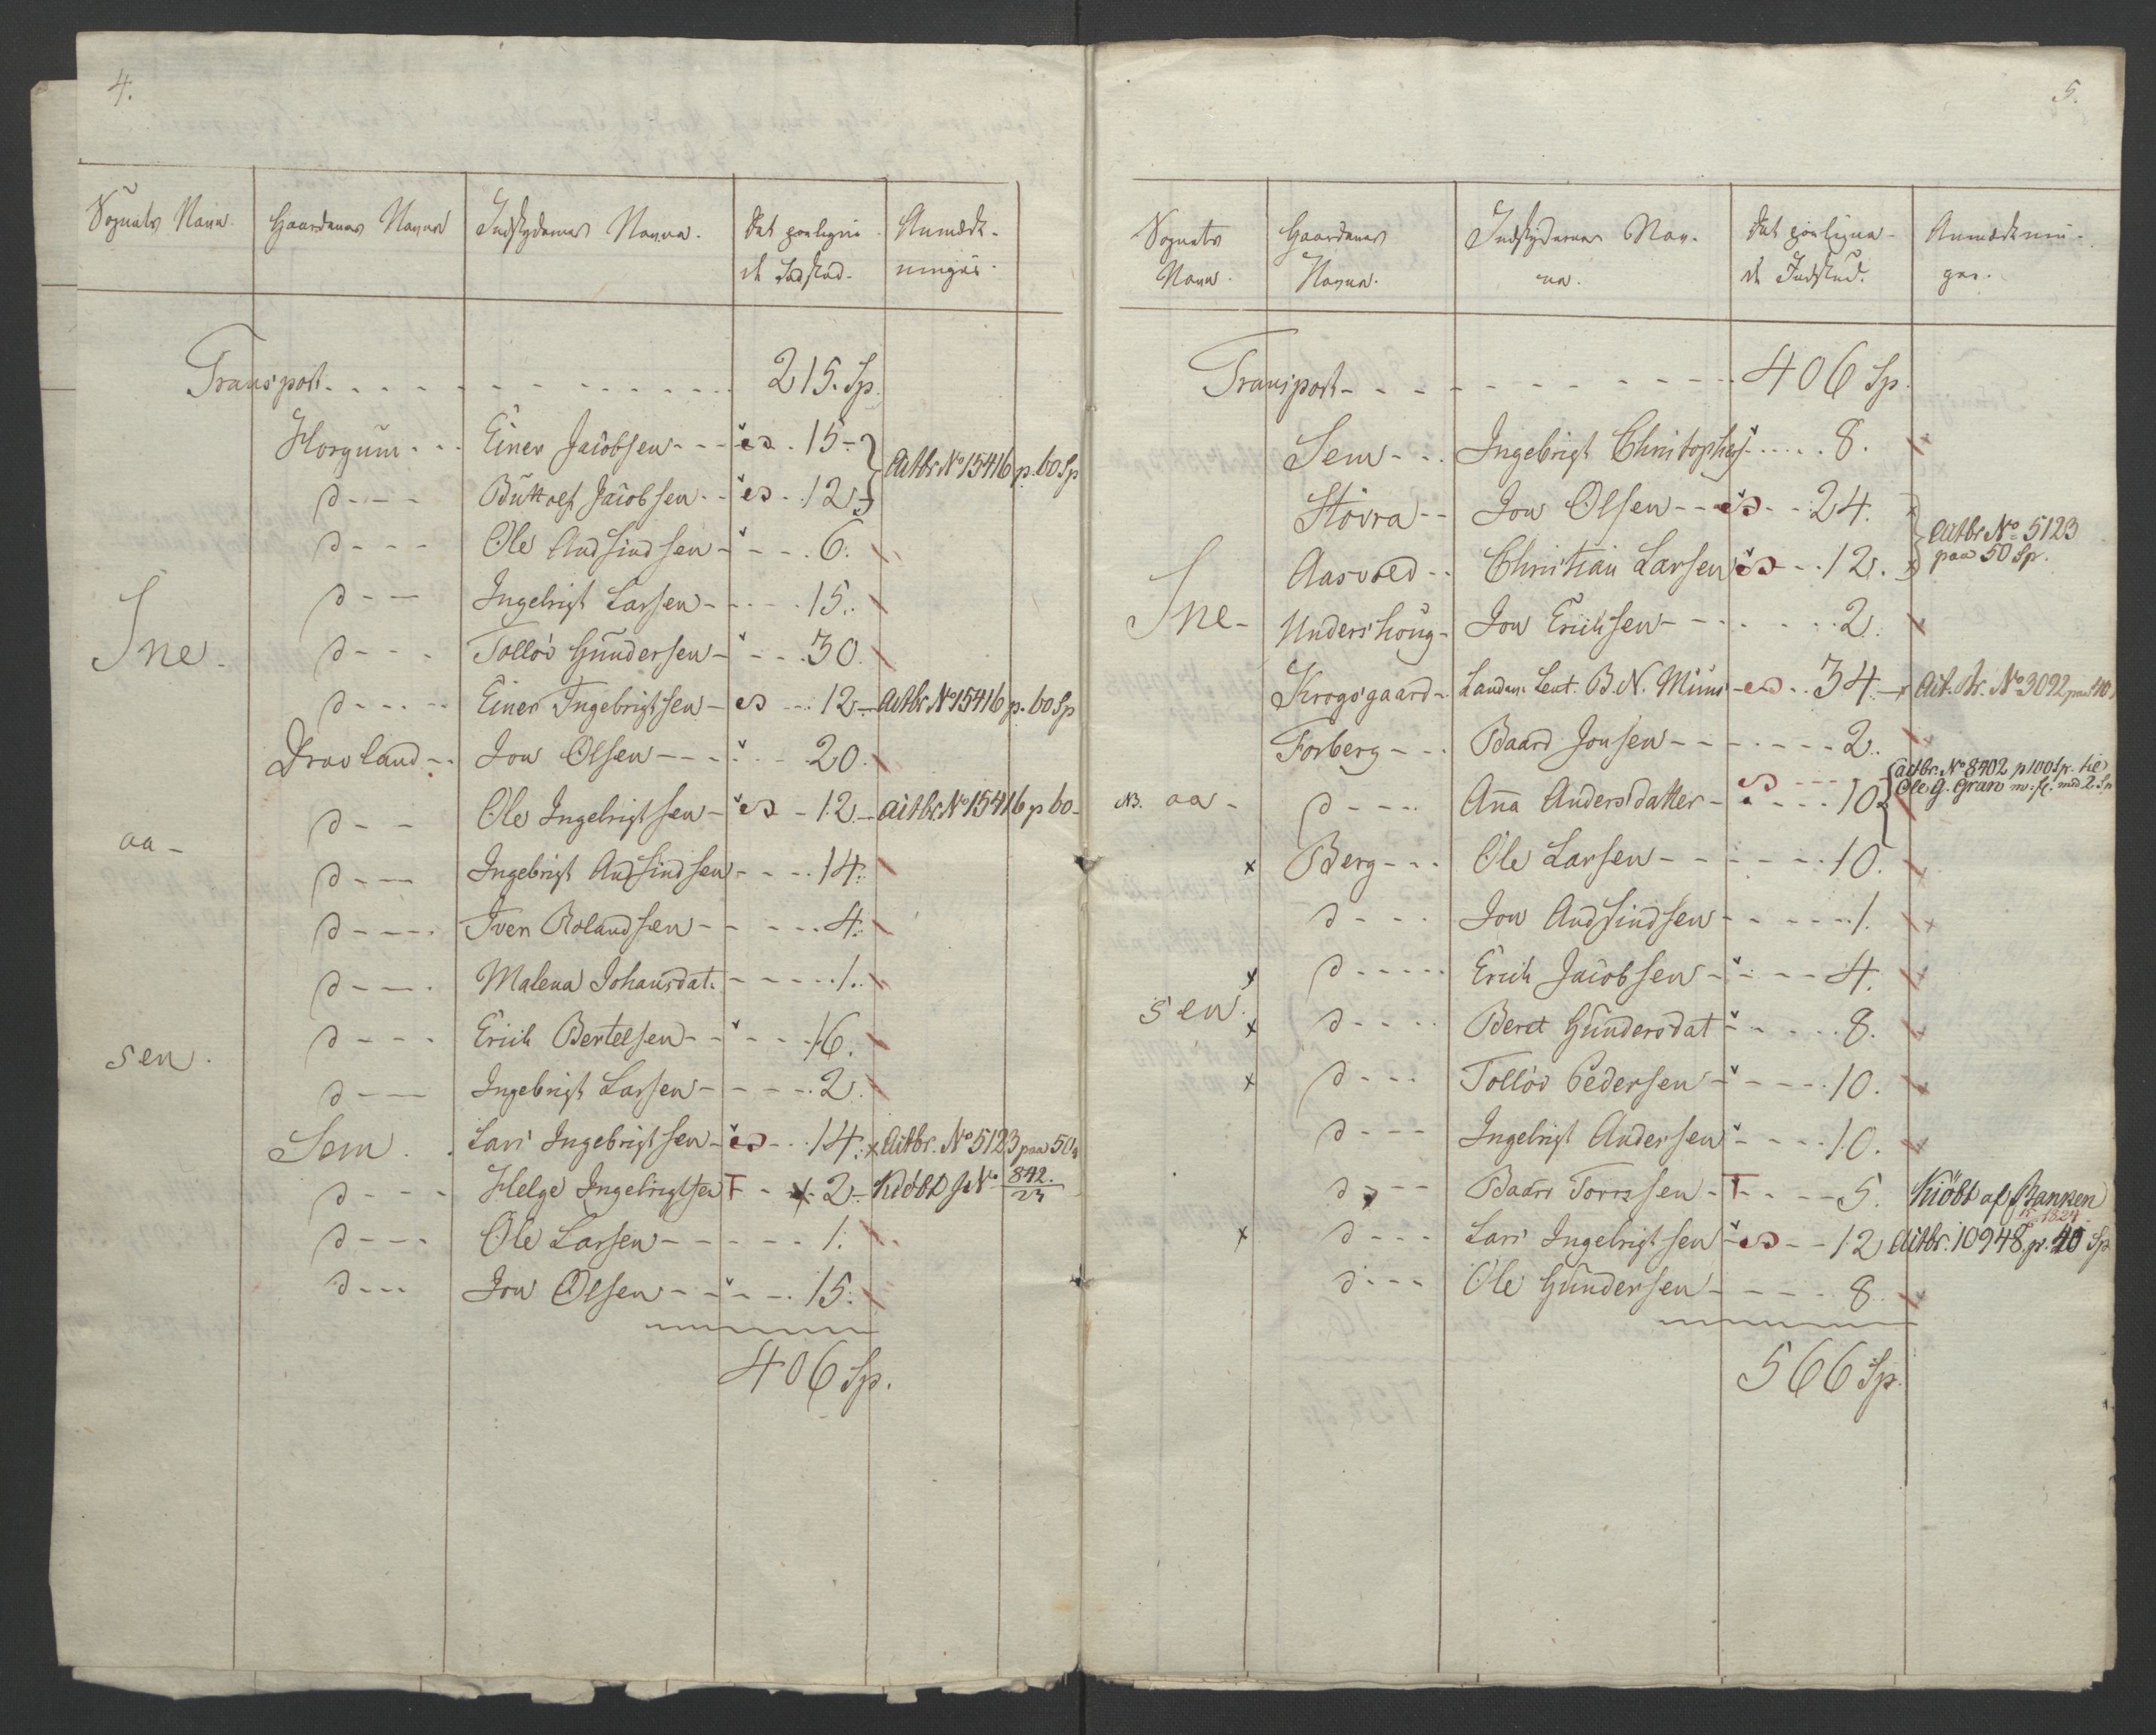 4.
Sognets Navn. Gaardenes Navne Indskydernes Navne. Det pålignede Indskud. Anmærkninger.
Transport 215. Sp.
Horgum Einer Jacobsen 15 Actbr. No 15416 p. 60 Sp
d Buttolf Jacobsen 12
d Ole Andfindsen 6.
d Ingebrigt Larsen 15.
Ine. d Tollöv Gundersen 30.
d Einer Ingebrigtsen 12 Actbr No 15416 p. 60 Sp
Dravland Jon Olsen 20.
d Ole Ingebrigtsen 12 Actbr. No 15416 p 60
aa d Ingebrigt Andfindsen 14.
d Iver Rolandsen 4.
d Malena Johansdat. 1.
d Erich Bertelsen 16.
sen. d Ingebrigt Larsen 2.
Sem Lars Ingebrigtsen 14. x Actbr. No 5123 paa 50
d Helge Ingebrigtsen T x 2 Kiöbt No 842.
d Ole Larsen 1.
d Jon Olsen 15.
406 Sp.
5.
Sognets Navn. Gaardenes Navne. Indskydernes Navne. Det pålignede Indskud. Anmærkninger.
Transport 406 Sp.
Sem Ingebrigt Christophers 8.
Stövra Jon Olsen 24. Actbr No 5123
Aasvold Christian Larsen 12. paa 50 Sp.
Ine Undershoug Jon Erichsen 2.
Krogsgaard Landm. Leut. B. N. Müus 34. Act. Br. No 3092 paa 40
Forberg Baard Jonsen 2.
Actbr. No 8402 p 100 Sp. til
NB. aa d Ana Andersdatter 10 Ole G. Gran m. fl. med 2 Sp
x Berg Ole Larsen 10.
d Jon Andfindsen 1.
x d Erich Jacobsen 4.
sen. x d Beret Gundersdat 8.
x d Tollöv Pedersen 10.
d Ingebrigt Andersen 10.
d Baard Torrissen T 5. Kiöbt af Banken
x d Lars Ingebrigtsen 12 Actbr. 10948. p. 40 Sp
d Ole Gundersen 8.
566 Sp.